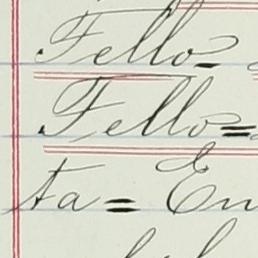 Fello-
Fello=
ta= En